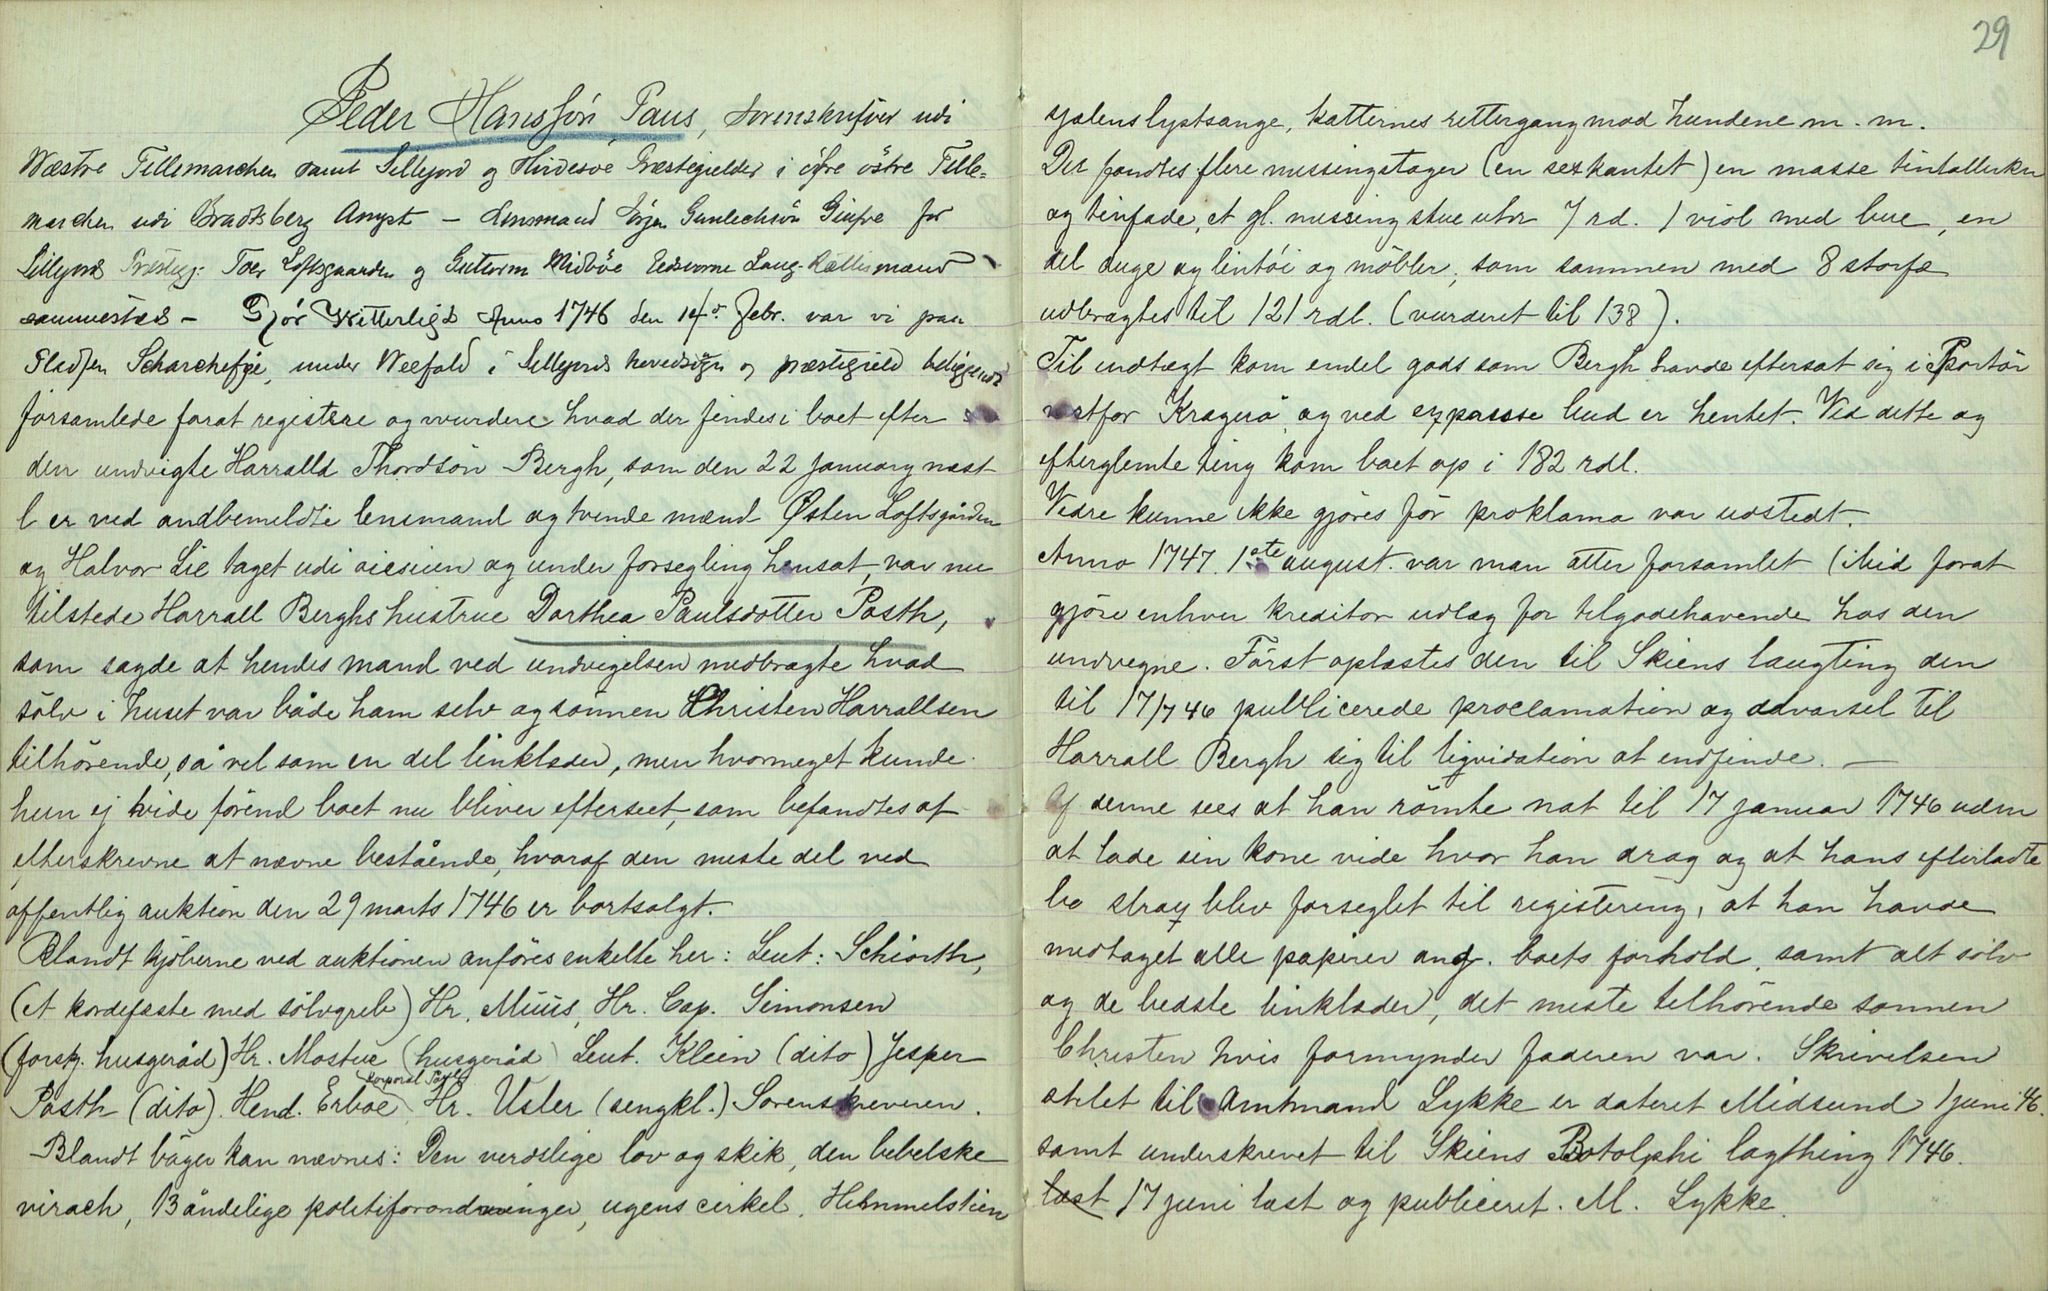 Peder Hanssön Paus, Sorenskriver udi
Wæstre Tellemarchen samt Sillejord og Hvidesöe Præstegielder i öfre östre Telle-
marchen udi Bradtsberg Ampt - Lensmand Gunlechsön for
Sillejords Præsteg: Toer Loftsgaarden og Gutorm Midböe Edsorne Laug-Rættismænd
sammesteds - Gjör Witterligt Anno 1746 den 14de Febr. var vi paa
Pladsen under Weefald i Sillejords hovedsogn og præstegield beliggende
forsamlede forat registere og wurdere hvad der findes i boet efter
den undvigte Harralld Thordsön Bergh, som den 22 January næst
l er ved andbemeldte lensmand og tvende mænd Østen Loftsgården
og Halvor Lie taget udi og under forsegling hensat, var nu
tilstede Harrall Berghs hustrue Dorthea Paulsdotter Posth,
som sagde at hendes mand ved undvigelsen medbragte hvad
sölv i huset var både ham selv og sönnen Christen Harrallsen
tilhörende, så vel som en del linklæder, men hvormeget kunde
hun ej vide förend boet nu bliver efterseet, som befandtes af
efterskrevne at nævne bestående, hvoraf den meste del ved
offentlig auktion den 29 marts 1746 er bortsolgt.
Blandt kjöberne ved auktionen anföres enkelte her: Leut: Schiorth,
(et kordefæste med sölvgreb) Hr. Müüs, Hr. Cap. Simonsen
(forskj. husgeråd) Hr. Mostue (husgeråd) Leut. Klein (dito) Jesper
korporal
Posth (dito). Hend. Erboe, Hr. Usler (sengkl.) Sorenskreveren.
Blandt böger kan nævnes: Den verdslige lov og skik, den bebelske
virach, 13 åndelige politiforordninger, ugens cirkel, Himmelstien
29
sjælens lystsange, katternes rettergang mod hundene m. m.
Der fandtes flere messingstager (en sexkantet) en masse tintallerkn
og tinfade, et gl. messing stueuhr 7 rd. 1 viol med bue, en
del duge og lintöi og möbler, som sammen med 8 storfæ
udbragtes til 121 rdl. (vurderet til 138).
Til indtægt kom endel gods som Bergh havde eftersat sig i Portör
vestfor Kragerö, og ved expresse bud er hentet. Ved dette og
efterglemte ting kom boet op i 182 rdl.
Vedre kunne ikke gjöres för proklama var udstedt.
Anno 1747. 1ste august. var man atter forsamlet (i Mid forat
gjöre enhver kreditor udlæg for tilgodehavende hos den
undvegne. Först oplæstes den til Skiens laugting den
til 17/7 46 publicerede proclamation og advarsel til
Harrall Bergh sig til liqvidation at indfinde. —
Af denne sees at han römte nat til 17 januar 1746 uden
at lade sin kone vide hvor han drog og at hans efterladte
bo strax blev forseglet til registering, at han havde
medtaget alle papirer ang. boets forhold, samt alt sölv
og de bedste linklæder, det meste tilhörende sönnen
Christen hvis formynder faderen var. Skrivelsen
stilet til Amtmand Lykke er dateret Midsund 1 juni 46.
samt underskrevet til Skiens Botolphi lagthing 1746.
læst 17 juni læst og publiceret. M. Lykke.